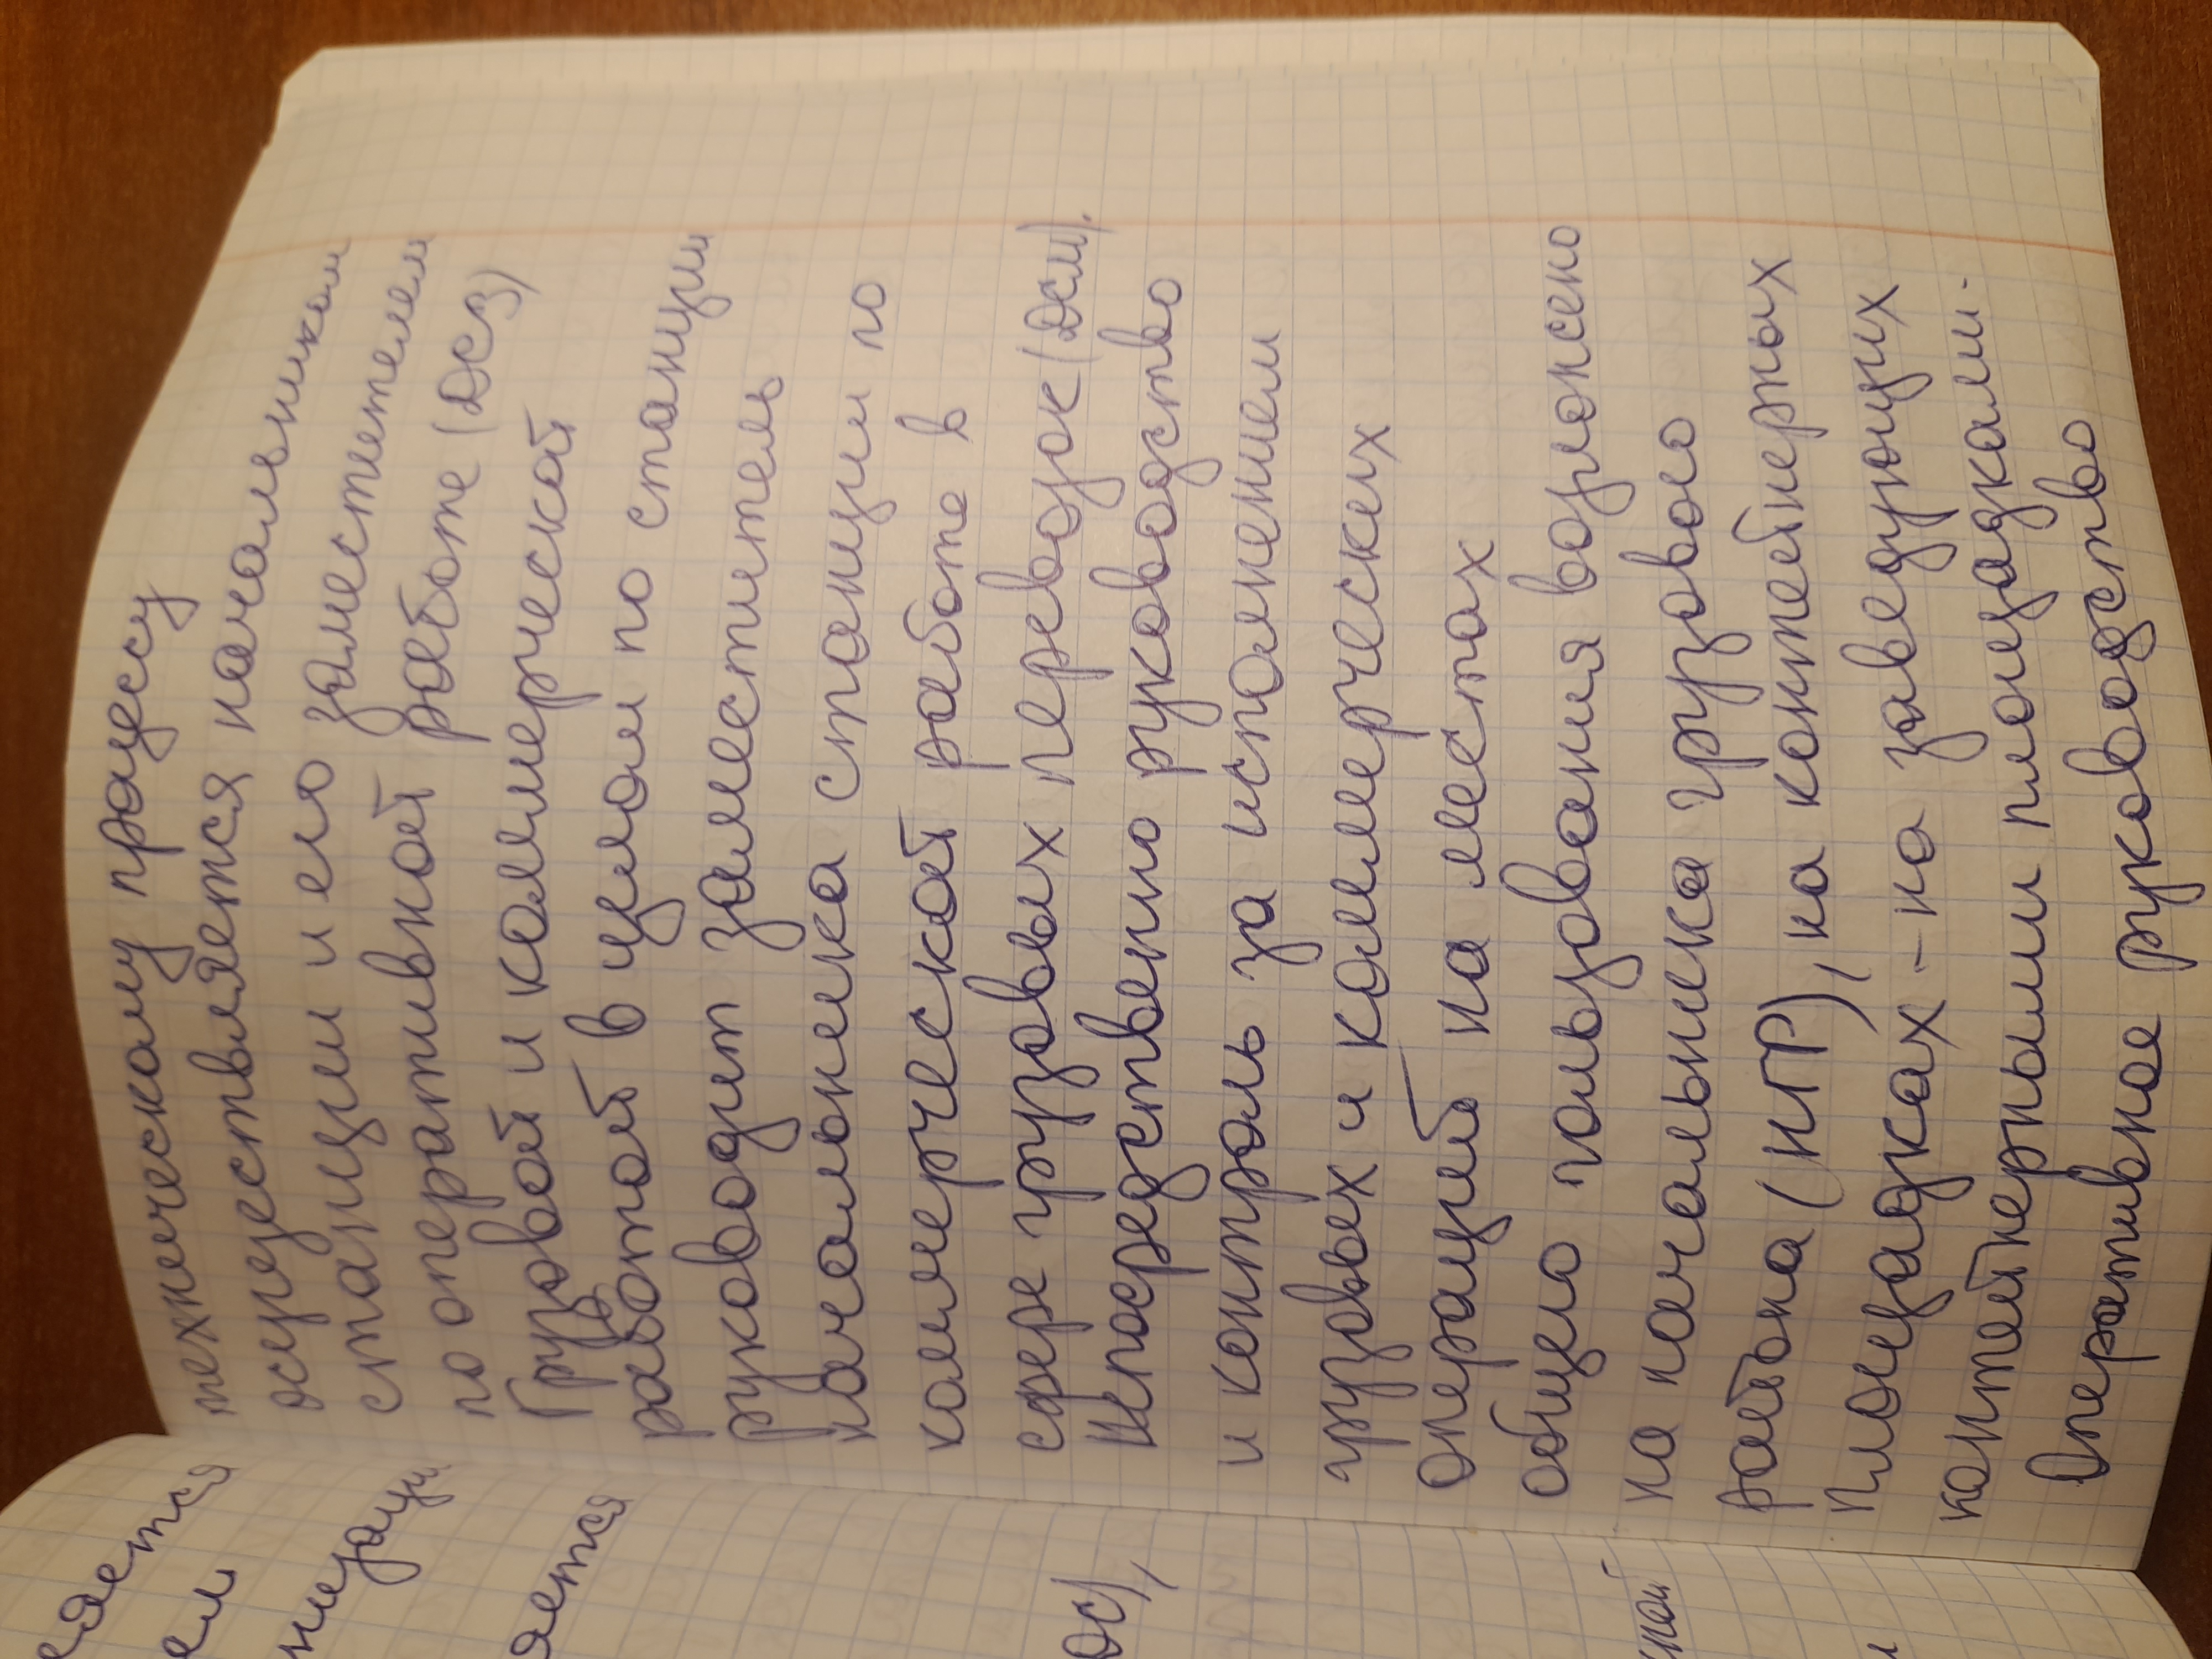 едяется
ем
низаци
яется
ДС),
ной
и
техническому процессу
осуществляется начальником
станции и его заместителем
по оперативной работе (ДСЗ)
Грузовой и коммерческой
работой в целом по станции
руководит заместитель
начальника станции по
коммерческой работе в
сфере грузовых перевозок (ДСМ).
Непосредственно руководство
и контроль за исполнением
грузовых и коммерческих
операций на местах
общего пользования возложено
на начальника грузового
района (НГР), на контейнерных
площадках - на заведующих
контейнерными площадками.
Оперативное руководство